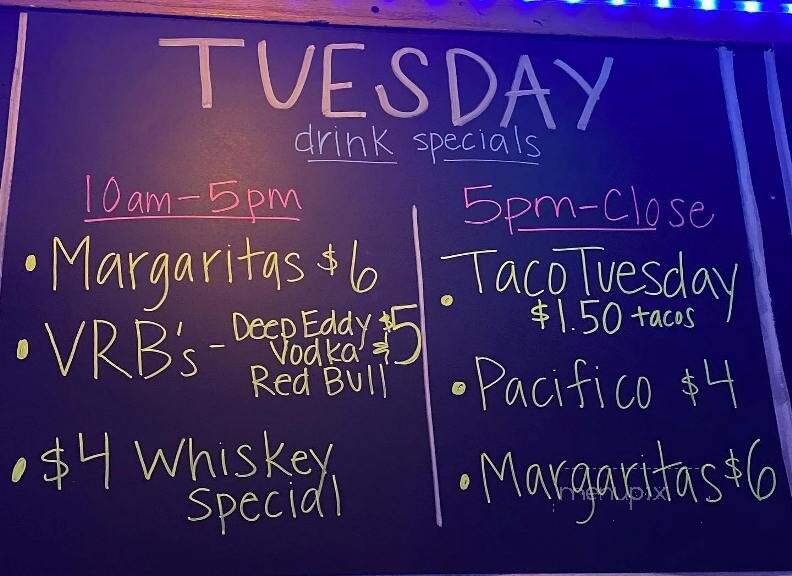 TUESDAY
drink specials
10am-5pm
• Margaritas $6
• VRB's - Deep Eddy $5
Vodka &
Red Bull
• $4 Whiskey
special
5pm-Close
• Taco Tuesday
$1.50 tacos
• Pacifico $4
• Margaritas $6
menupix